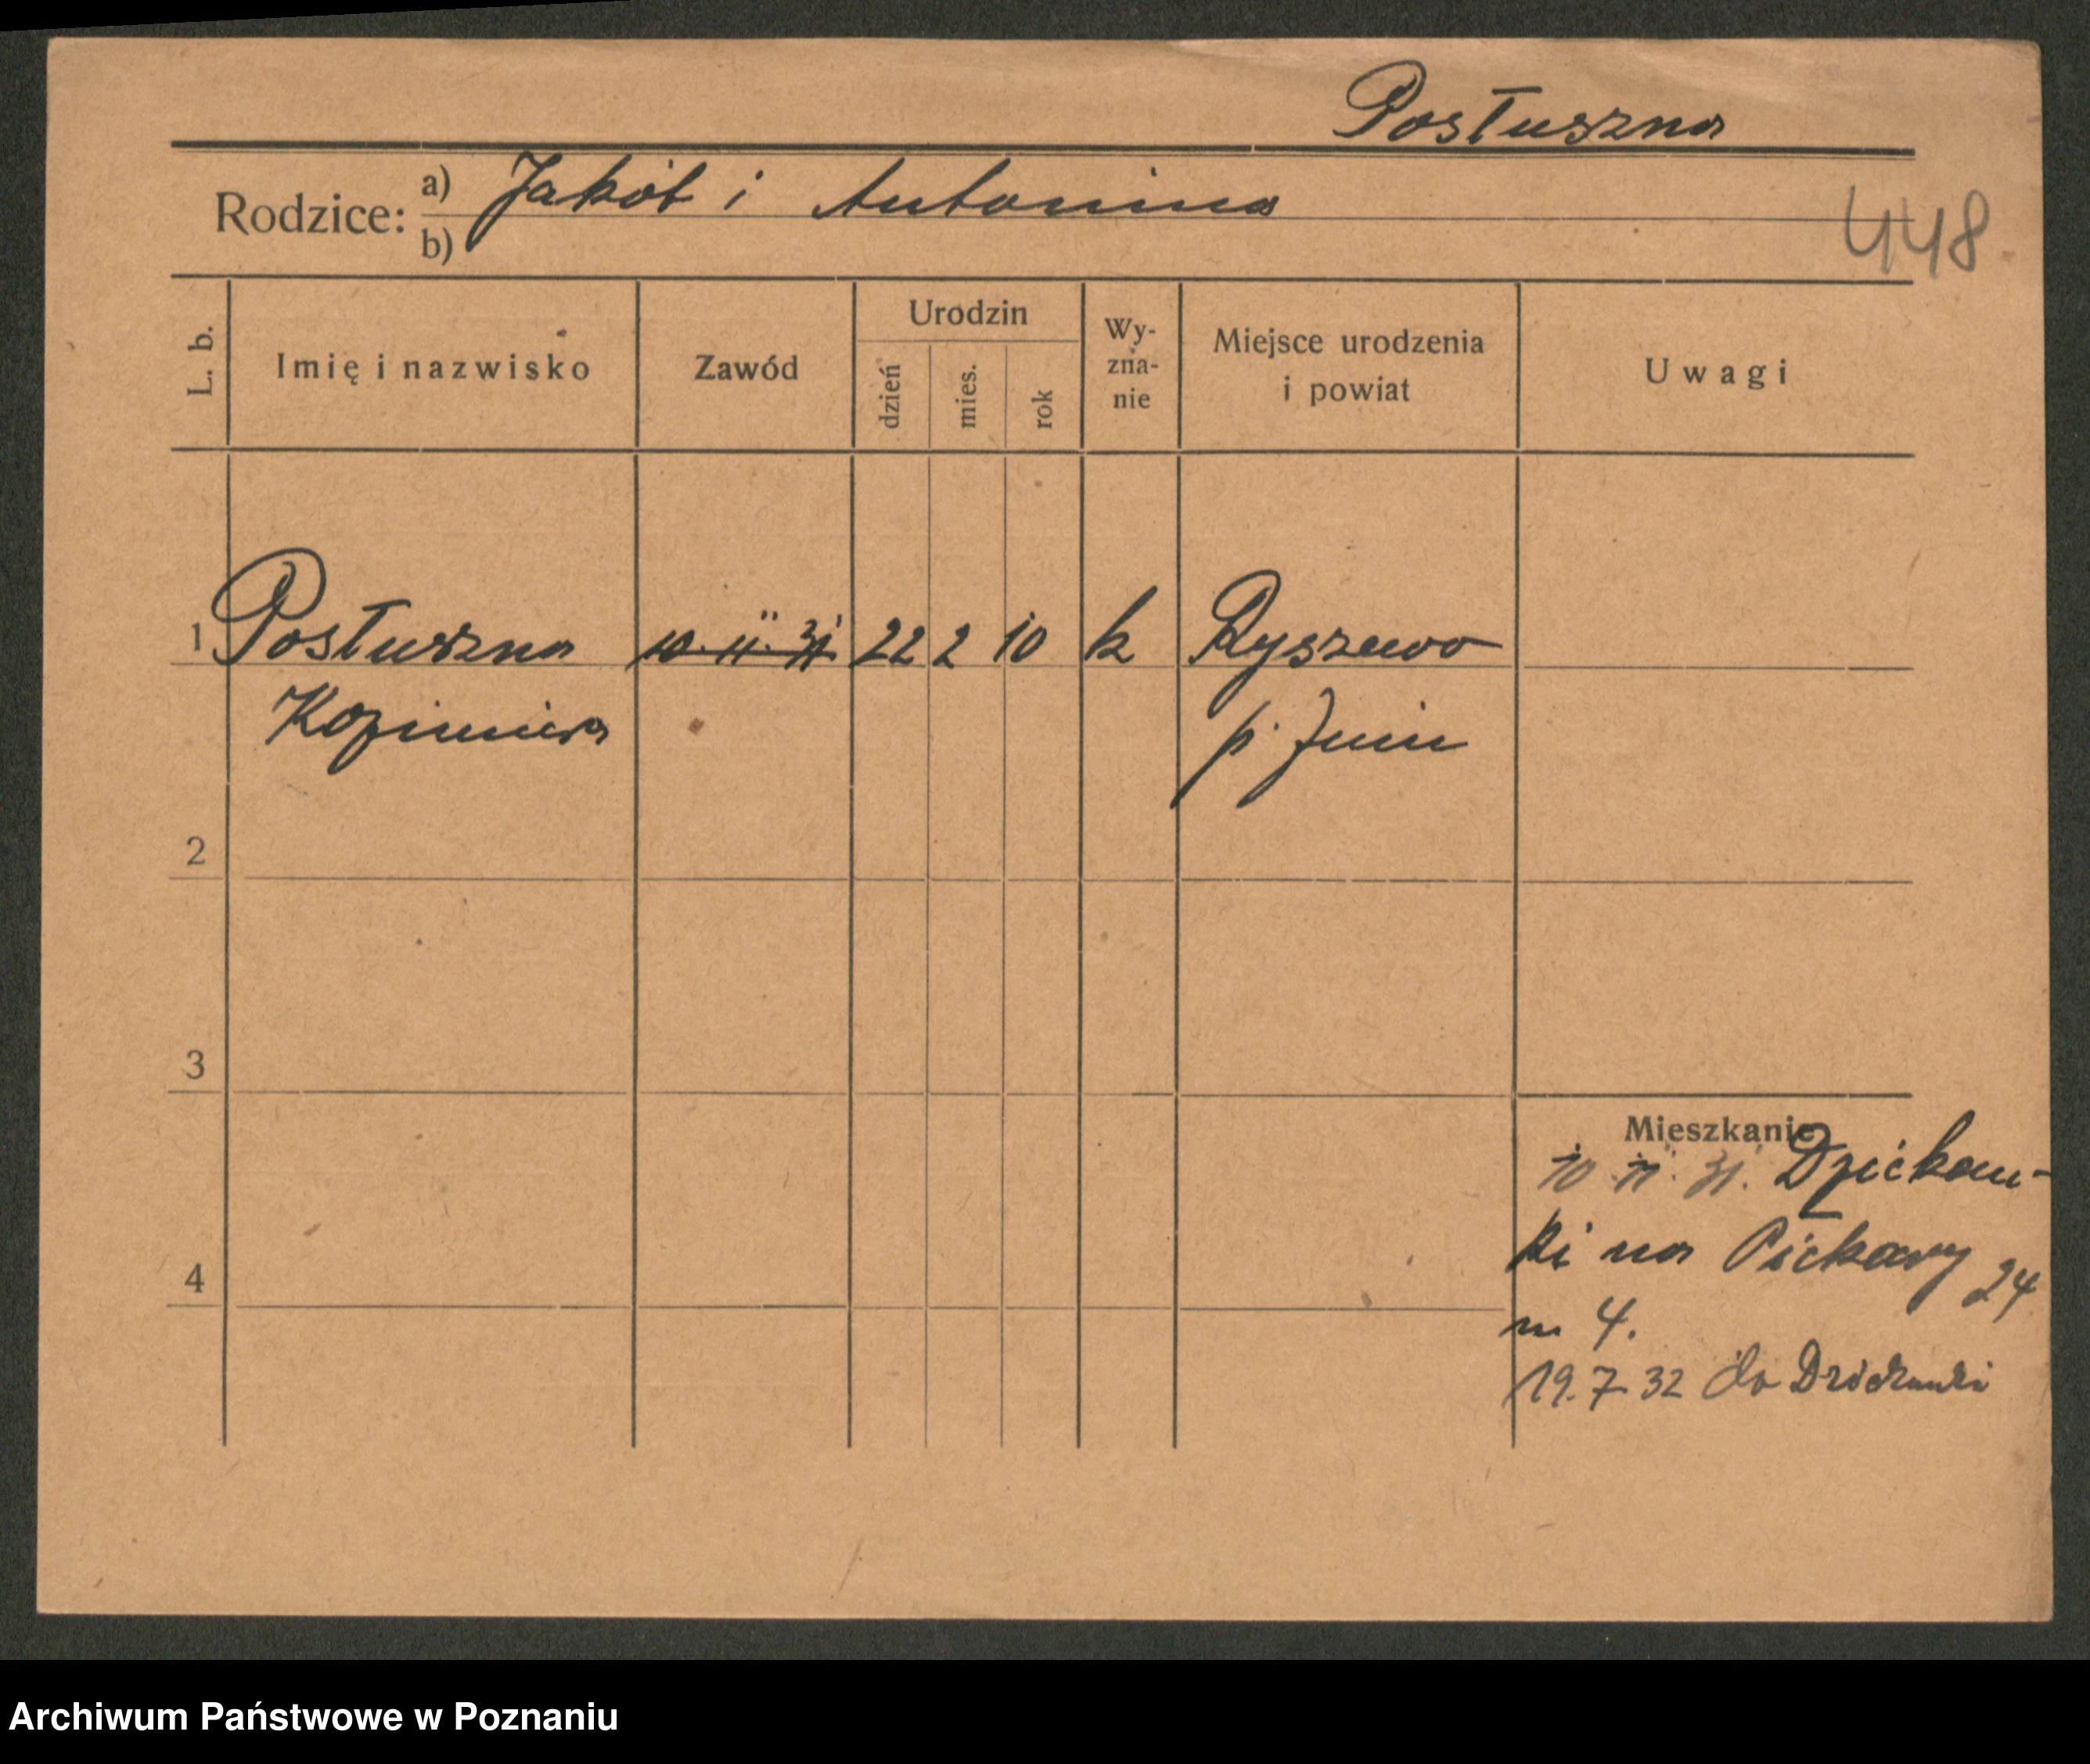 Posłuszna
Rodzice: a) Jakób i Antonina
b)
448
L. b. Imię i nazwisko Zawód Urodzin dzień mies. rok Wy-zna-nie Miejsce urodzenia i powiat Uwagi
1 Posłuszna 10. 11. 31 22 2 10 k Ryszewo
Kazimiera p. Żnin
2
3
Mieszkanie
10. 11. 31. Dziekan-
ki na Piekary 24
4
m 4.
19. 7. 32 do Dziekanki
Archiwum Państwowe w Poznaniu